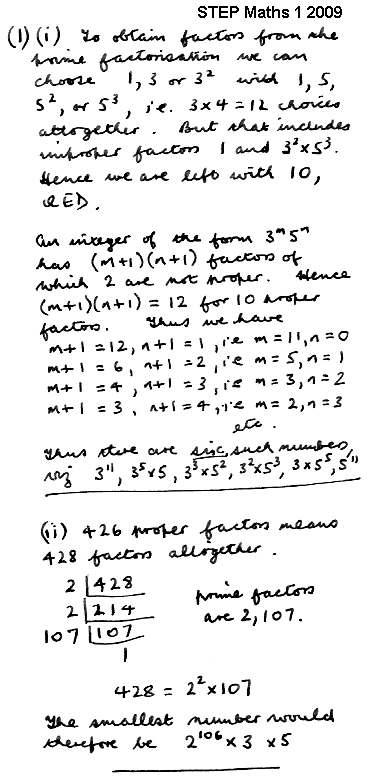 STEP Maths 1 2009
(1) (i) To obtain factors from the
prime factorisation we can
choose 1, 3 or 3² with 1, 5,
5², or 5³, i.e. 3×4 = 12 choices
altogether. But that includes
improper factors 1 and 3²×5³.
Hence we are left with 10,
QED.
An integer of the form 3ᵐ5ⁿ
has (m+1)(n+1) factors of
which 2 are not proper. Hence
(m+1)(n+1) = 12 for 10 proper
factors. Thus we have
m+1 = 12, n+1 = 1, i.e m = 11, n = 0
m+1 = 6, n+1 = 2, i.e m = 5, n = 1
m+1 = 4, n+1 = 3, i.e m = 3, n = 2
m+1 = 3, n+1 = 4, i.e m = 2, n = 3
etc.
Thus there are six such numbers,
viz 3¹¹, 3⁵×5, 3³×5², 3²×5³, 3×5⁵, 5¹¹
(ii) 426 proper factors means
428 factors altogether.
2 | 428
2 | 214
107 | 107
1
prime factors
are 2, 107.
428 = 2²×107
The smallest number would
therefore be 2¹⁰⁶×3×5